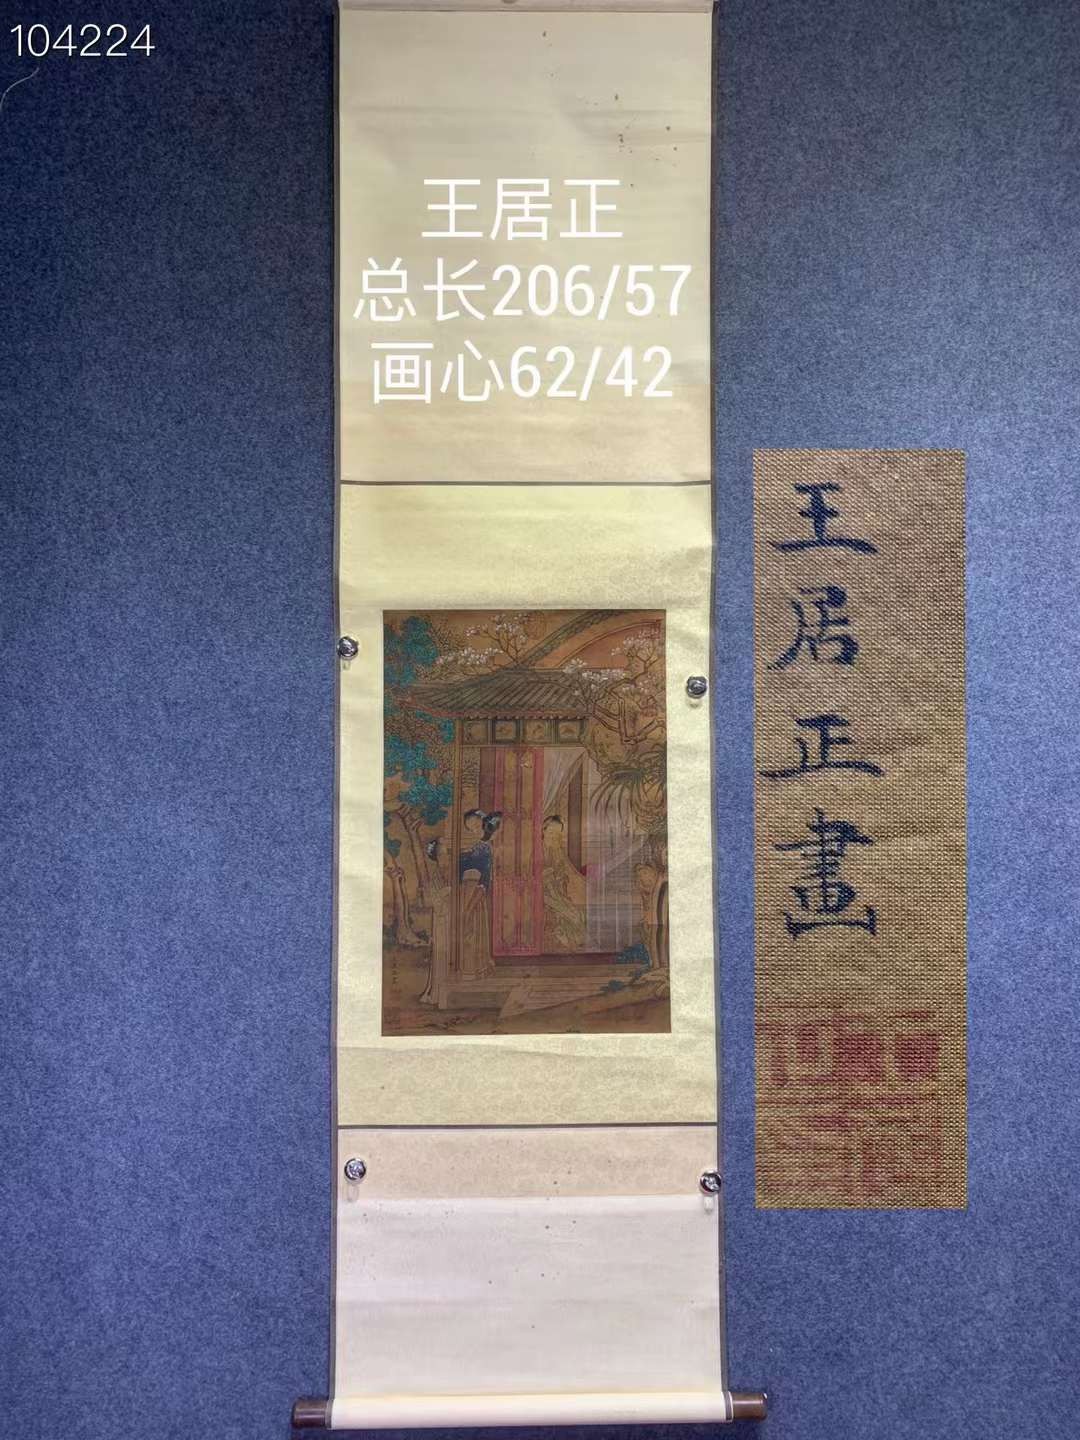 104224
王居正
总长206/57
画心62/42
王居正畫